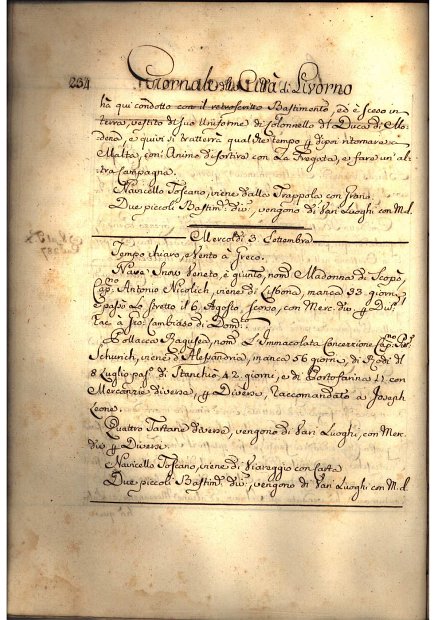 234 Giornale della Città di Livorno
hà qui condotto con il retroscritto Bastimento, ed è sceso in
terra, vestito di suo Uniforme di Colonnello del Duca di Mo-
dena, e quivi si tratterrà qualche tempo p. dipoi ritornare a
Malta, con Animo di sortire con La Fregata, e fare un' al-
tra Campagna.
Navicello Toscano, viene dalla Trappola con Grano.
Due piccoli Bastim. div., vengono di Vari Luoghi con M. d.
Mercoldì 3. Settembre
Tempo chiaro, e Vento à Greco.
Nave Snow Veneto, è giunto, nom. Madonna di Scopò,
Cap. Antonio Nicolich, viene di Lisbona, manca 33. giorni,
e passò Lo Stretto il 6. Agosto scorso, con Merc. div. p. div.
Rac. à Gio: Cambiaso di Dom.
Pollacca Ragusea, nom. L'Immacolata Concezzione, Cap.
Schurich, viene d'Alessandria, manca 56 giorni, di Rodi dl
8 Luglio pas. di Stanchio 42. giorni, e di Portofarina 21. con
Mercanzie diverse, p. Diversi, Raccomandato a Joseph
Leone.
Quattro Tartane diverse, vengono di Vari Luoghi, con Merc.
div. p. Diversi
Navicello Toscano, viene di Viareggio con carta
Due piccoli Bastim. div., vengono di Vari Luoghi con M. d.